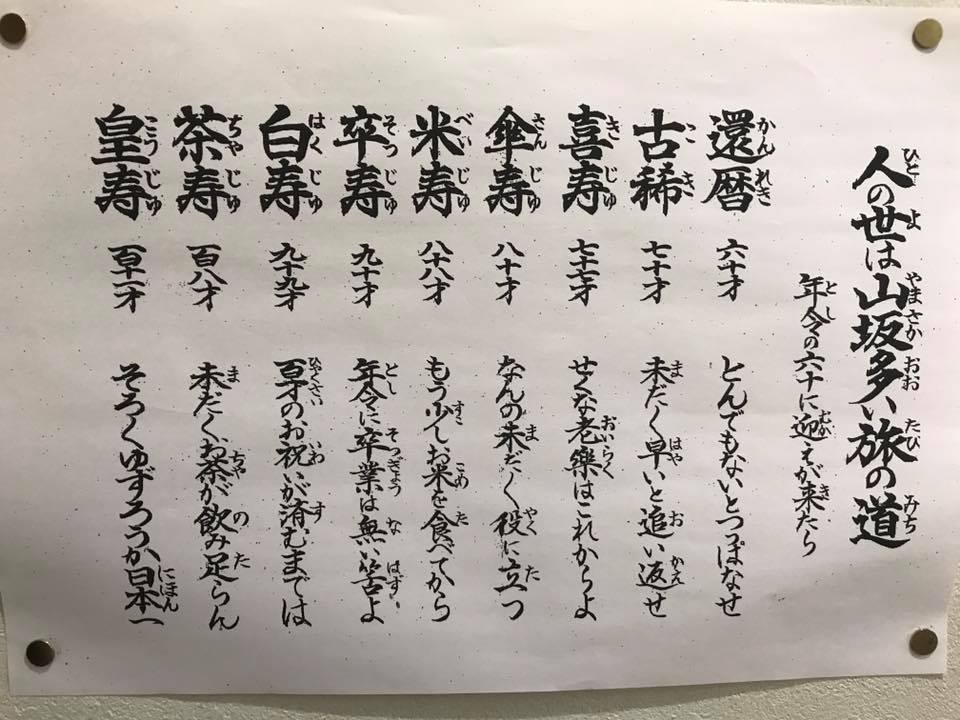 人の世は山坂多い旅の道
年令の六十に迎えが来たら
還暦 六十才 とんでもないとつっぱなせ
古稀 七十才 未だ〱早いと追い返せ
喜寿 七十七才 せくな老樂はこれからよ
傘寿 八十才 なんの未だ〱役に立つ
米寿 八十八才 もう少しお米を食べてから
卒寿 九十才 年令に卒業は無い筈よ
白寿 九十九才 百才のお祝いが済むまでは
茶寿 百八才 未だ〱お茶が飲み足らん
皇寿 百十一才 そろ〱ゆずろうか日本一